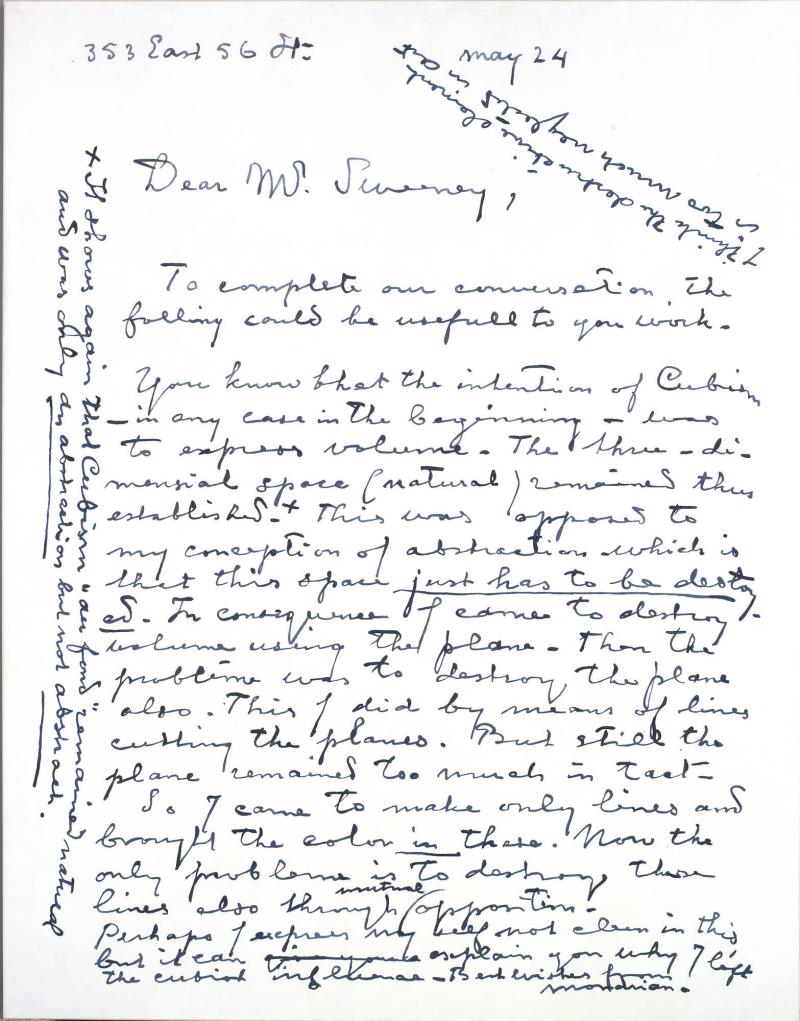 353 East 56 St=
may 24
Dear Mr. Sweeney,
To complete our conversation, the
folling could be usefull to you work.
You know that the intention of Cubism
— in any case in the beginning — was
to express volume. The three-di-
mensial space (natural) remained thus
established.+ This was opposed to
my conception of abstraction which is
that this space just has to be destoy-
ed. In consequence I came to destroy
volume using the plane. Then the
problème was to destroy the plane
also. This I did by means of lines
cutting the planes. But still the
plane remained too much in tact—
So I came to make only lines and
brought the color in these. Now the
only probleme is to destroy these
lines also through mutual opposition.
Perhaps I express my self not clean in this
but it can explain you why I left
the cubist influence. Best wishes from
Mondrian.
+ It shows again that Cubism "au fond" remained natural
and was only an abstraction but not abstract.
I think the destructive element
is too much neglected in art